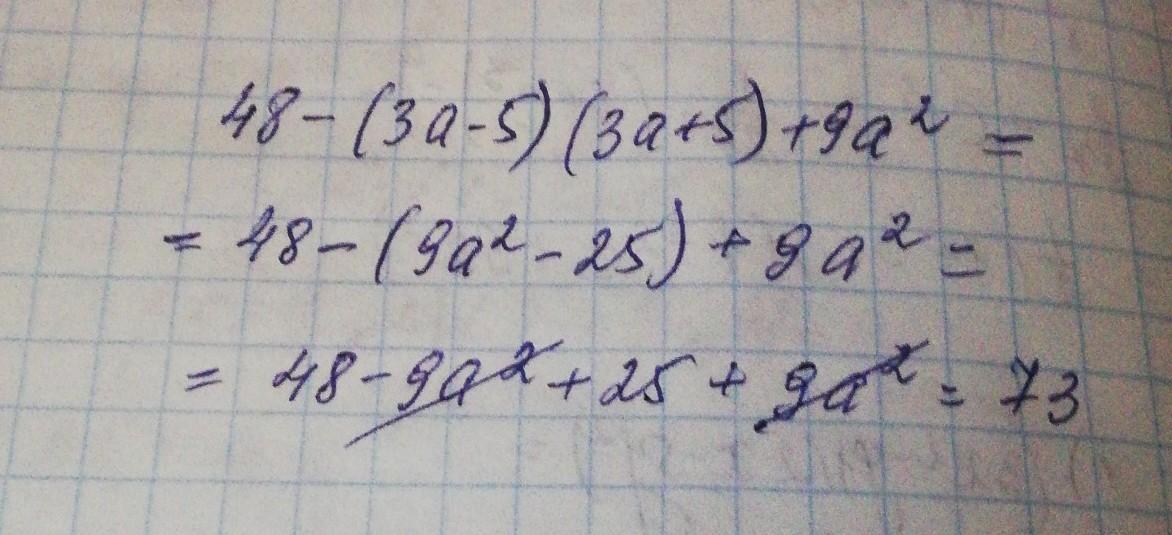 48-(3a-5)(3a+5)+9a² =
= 48-(9a²-25)+9a² =
= 48-9a²+25+9a² = 73